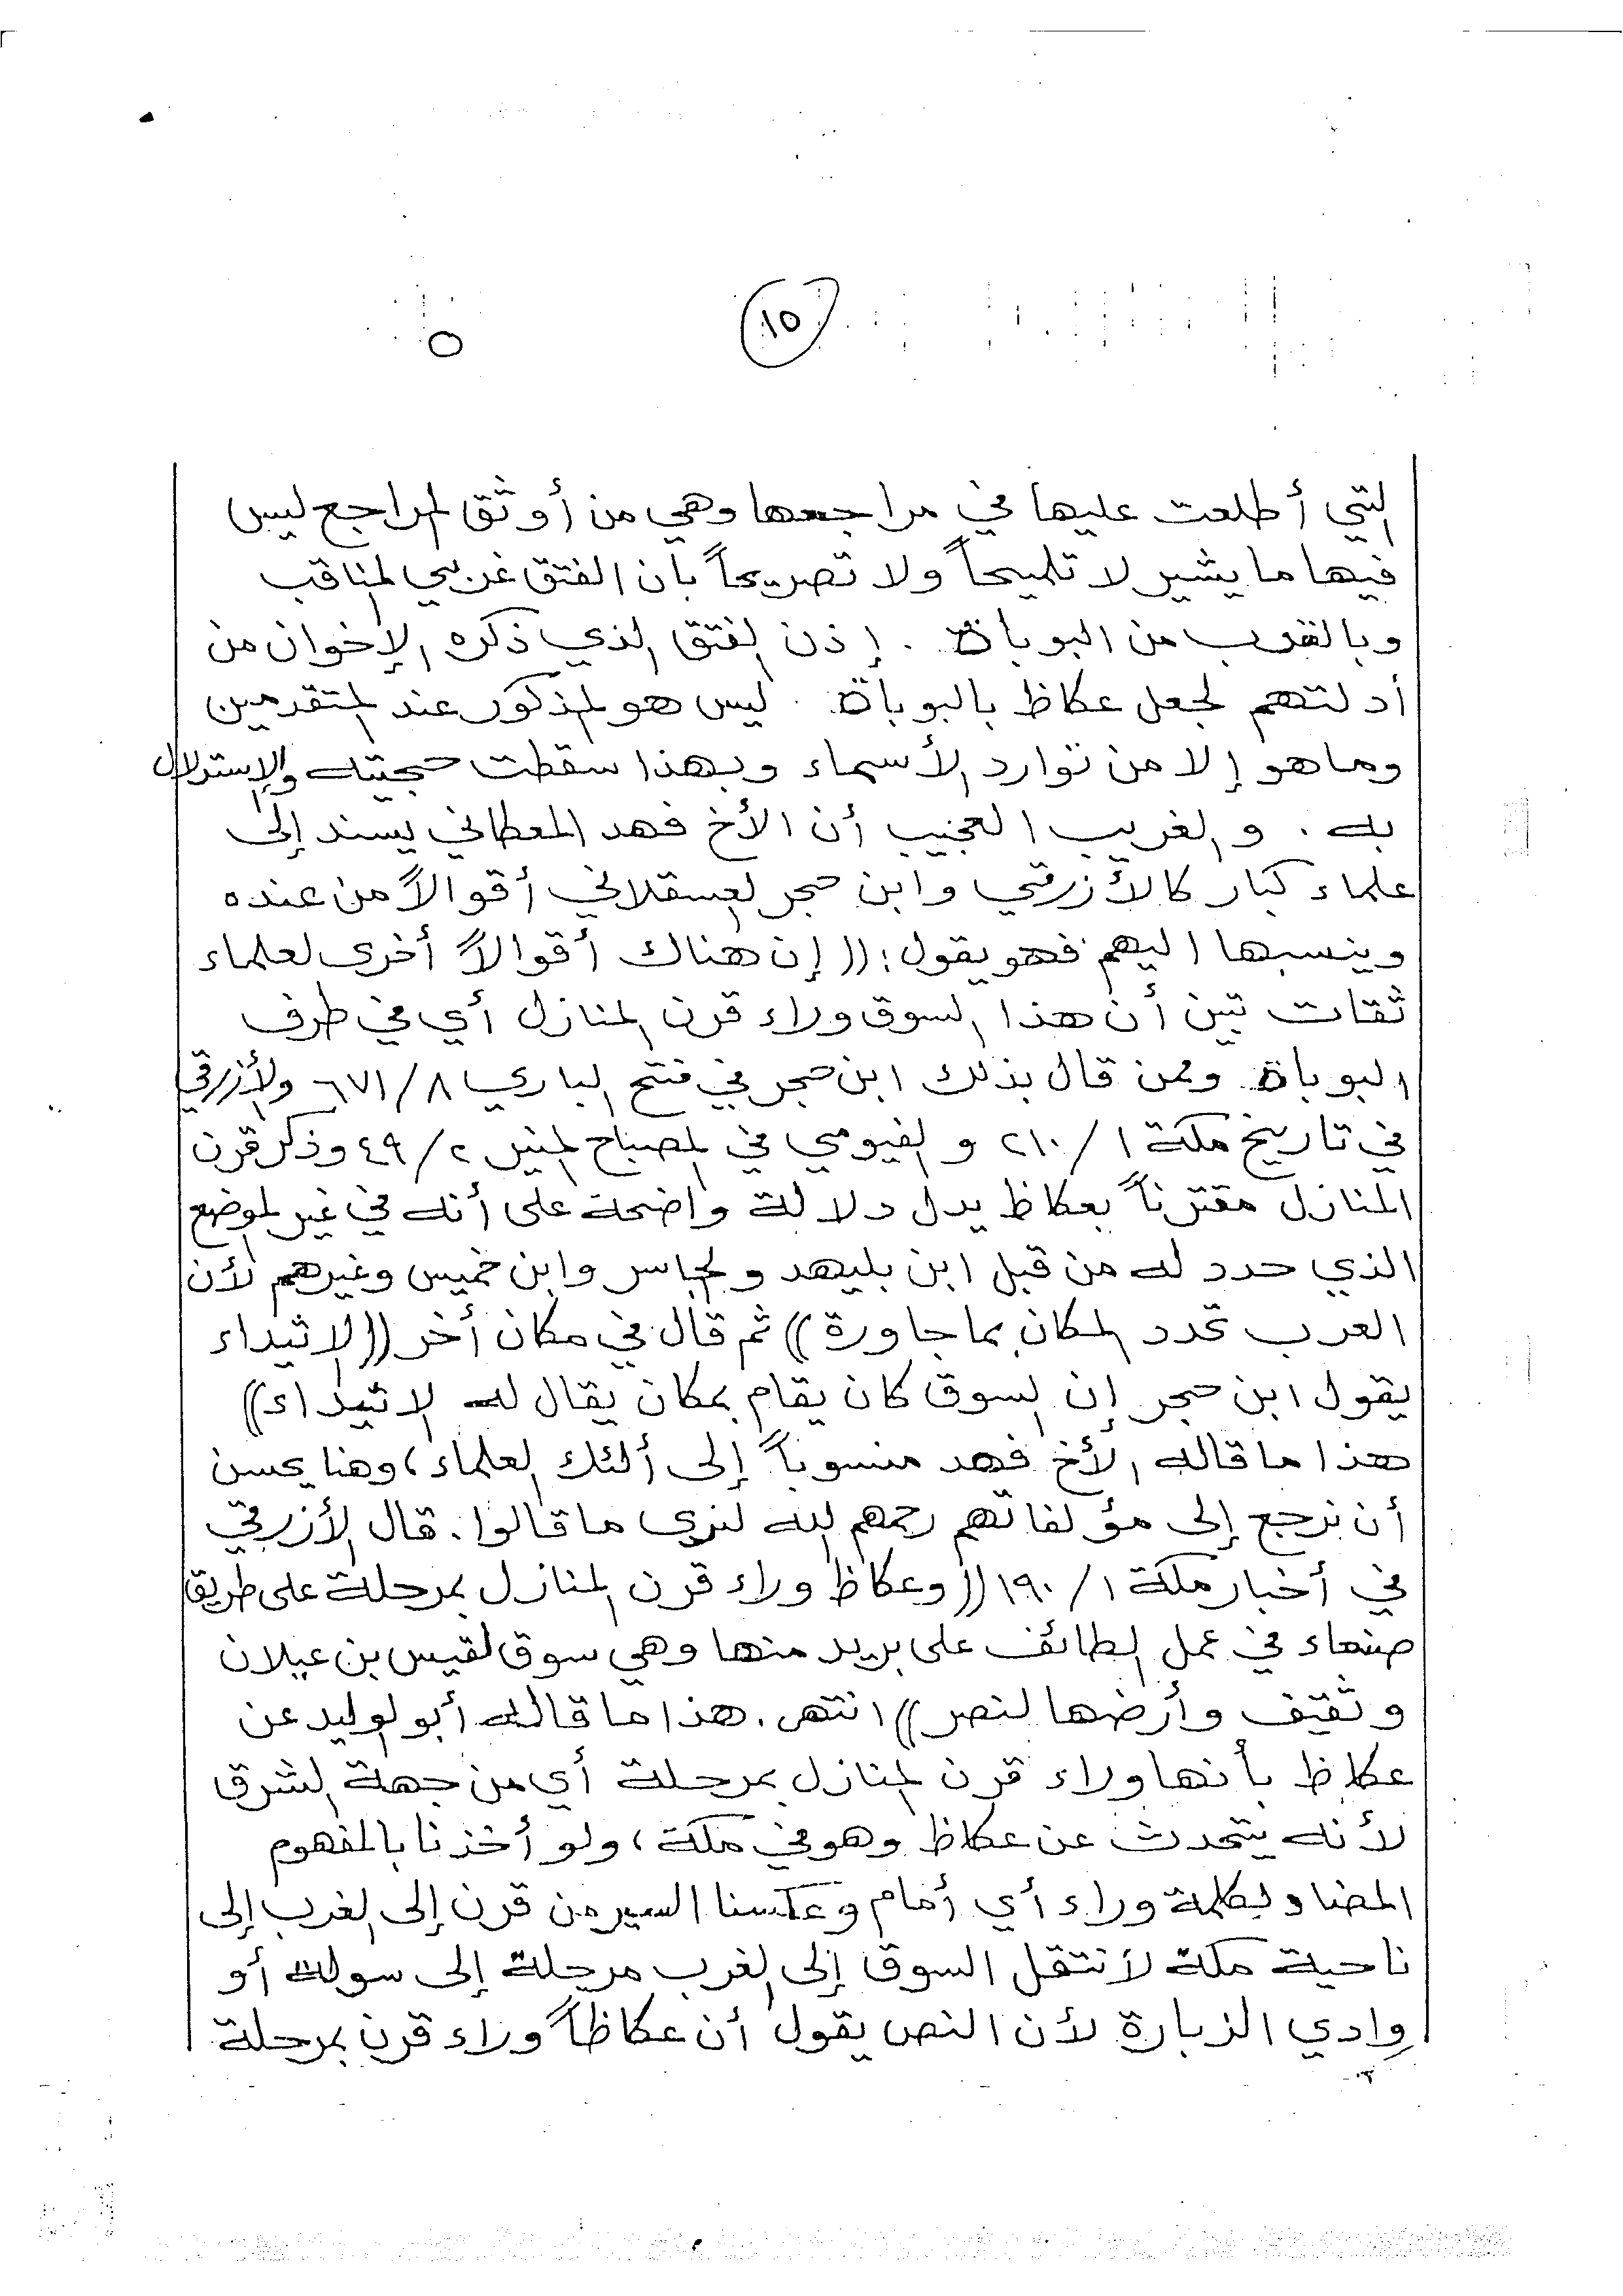 ١٥
٥
التي أطلعت عليها في مراجعها وهي من أوثق المراجع ليس
فيها ما يشير لا تلميحاً ولا تصريحاً بان الفتق غربي المناقب
وبالقرب من البوباة . إذن الفتق الذي ذكره الإخوان من
أدلتهم لجعل عكاظ بالبوباة . ليس هو المذكور عند المتقدمين
وما هو إلا من توارد الأسماء وبهذا سقطت حجيته والإستدلال
به . والغريب العجيب أن الأخ فهد المعطاني يسند إلى
علماء كبار كالأزرقي وابن حجر العسقلاني أقوالاً من عنده
وينسبها اليهم فهو يقول : (( إن هناك أقوالاً أخرى لعلماء
ثقات تبين أن هذا السوق وراء قرن المنازل أي في طرف
البوباة وممن قال بذلك ابن حجر في فتح الباري ٨/ ٦٧١ والأزرقي
في تاريخ مكة ١/ ٢١٠ والفيومي في المصباح المنير ٢/ ٤٩ وذكر قرن
المنازل مقترناً بعكاظ يدل دلالة واضحة على أنه في غير الموضع
الذي حدد له من قبل ابن بليهد والجاسر وابن خميس وغيرهم لأن
العرب تحدد المكان بما جاورة )) ثم قال في مكان أخر (( الاثيداء
يقول ابن حجر إن السوق كان يقام بمكان يقال له الاثيداء ))
هذا ما قاله الأخ فهد منسوباً إلى ألئك العلماء ، وهنا يحسن
أن نرجع إلى مؤلفاتهم رحمهم الله لنرى ما قالوا . قال الأزرقي
في أخبار مكة ١/ ١٩٠ (( وعكاظ وراء قرن المنازل بمرحلة على طريق
صنعاء في عمل الطائف على بريد منها وهي سوق لقيس بن عيلان
وثقيف وأرضها لنصر )) انتهى . هذا ما قاله أبو الوليد عن
عكاظ بأنها وراء قرن المنازل بمرحلة أي من جهة الشرق
لأنه يتحدث عن عكاظ وهو في مكة ، ولو أخذنا بالمفهوم
المضاد لكلمة وراء أي أمام وعكسنا السير من قرن إلى الغرب إلى
ناحية مكة لأنتقل السوق إلى الغرب مرحلة إلى سولة أو
وادي الزبارة لأن النص يقول أن عكاظاً وراء قرن بمرحلة